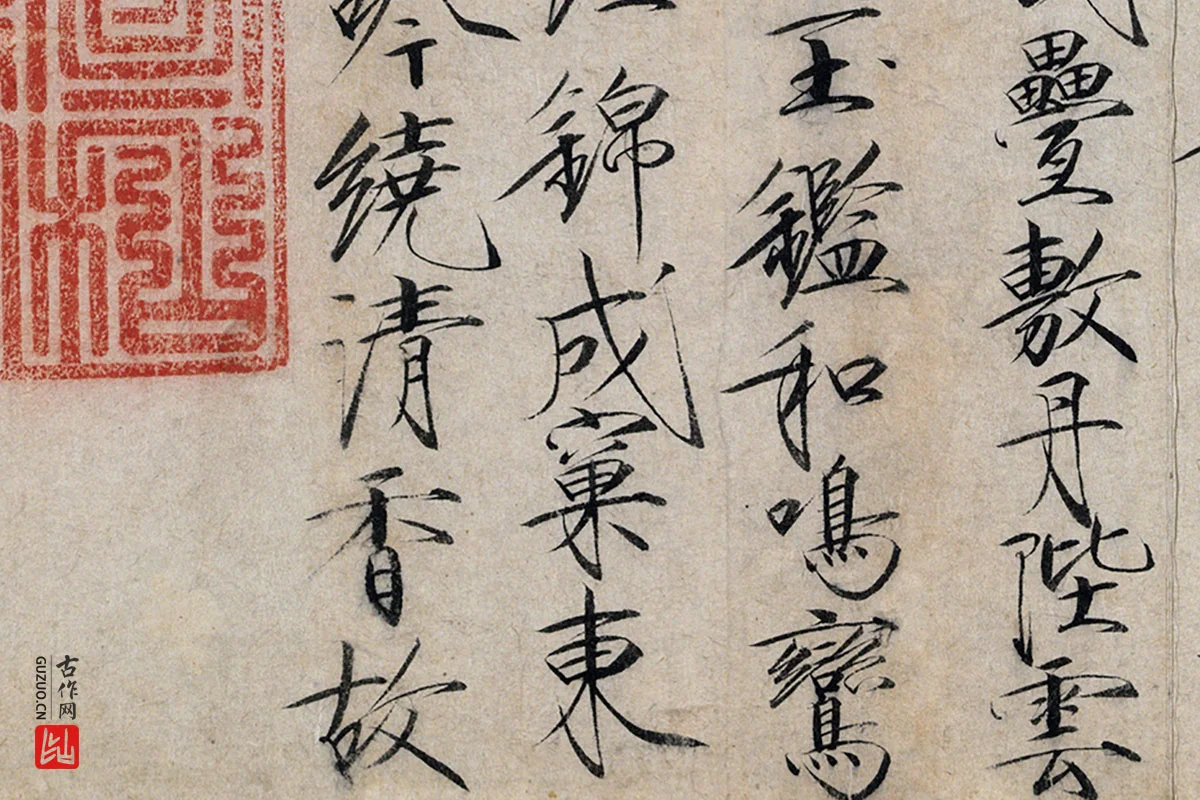 疊敷丹陛雲
玉鑑和鳴鸞
錦成窠東
吟繞清香故
古作网
GUZUO.CN